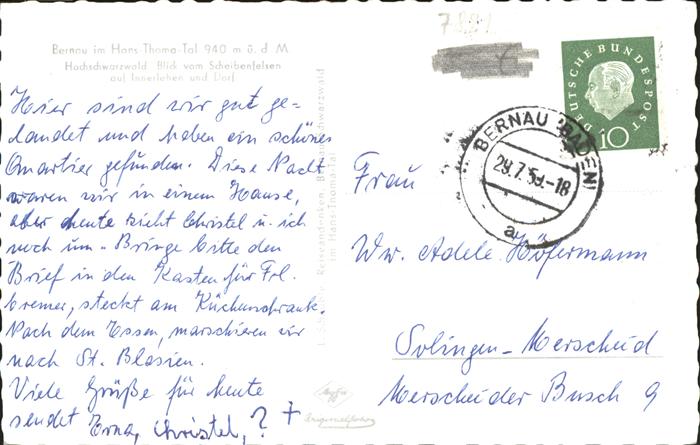 Bernau im Hans-Thoma-Tal 940 m ü. d. M.
Hochschwarzwald Blick vom Scheibenfelsen
auf Innerlehen und Dorf
Hier sind wir gut ge-
landet und haben ein schönes
Quartier gefunden. Diese Nacht
waren wir in einem Hause,
aber heute zieht Christel u. ich
noch um. Bringe bitte den
Brief in den Kasten für Frl.
Cremer, steckt am Küchenschrank.
Nach dem Essen, marschieren wir
nach St. Blasien.
Viele Grüße für heute
sendet Erna, Christel, ? +
Reiseandenken, Bernau
im Hans-Thoma-Tal
Schwarzwald
Agfa
DEUTSCHE BUNDESPOST
10
BERNAU (BADEN)
29.7.59.-18
a
Frau
Ww. Adele Höfermann
Solingen-Merscheid
Merscheider Busch 9